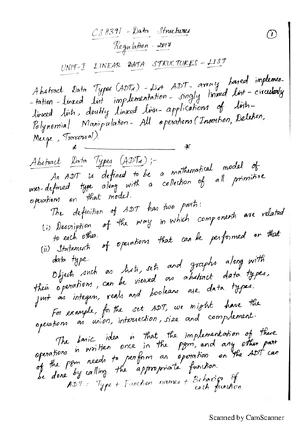 CS8391 - Data Structures
Regulation - 2017
①
UNIT-I LINEAR DATA STRUCTURES - LIST
Abstract Data Types (ADTs) - List ADT - array based implemen-
-tation - linked list implementation - singly linked list - circularly
linked lists, doubly linked lists - applications of lists -
Polynomial Manipulation - All operations (Insertion, Deletion,
Merge, Traversal)
Abstract Data Types (ADTs) :-
An ADT is defined to be a mathematical model of
user-defined type along with a collection of all primitive
operations on that model.
The definition of ADT has two parts:
(i) Description of the way in which components are related
to each other.
(ii) Statements of operations that can be performed on that
data type.
Objects such as lists, sets and graphs along with
their operations, can be viewed as abstract data types,
just as integers, reals and booleans are data types.
For example, for the set ADT, we might have the
operations as union, intersection, size and complement.
The basic idea is that the implementation of these
operations is written once in the pgm, and any other part
of the pgm needs to perform an operation on the ADT can
be done by calling the appropriate function.
ADT = Type + Function names + Behavior of
each function
Scanned by CamScanner